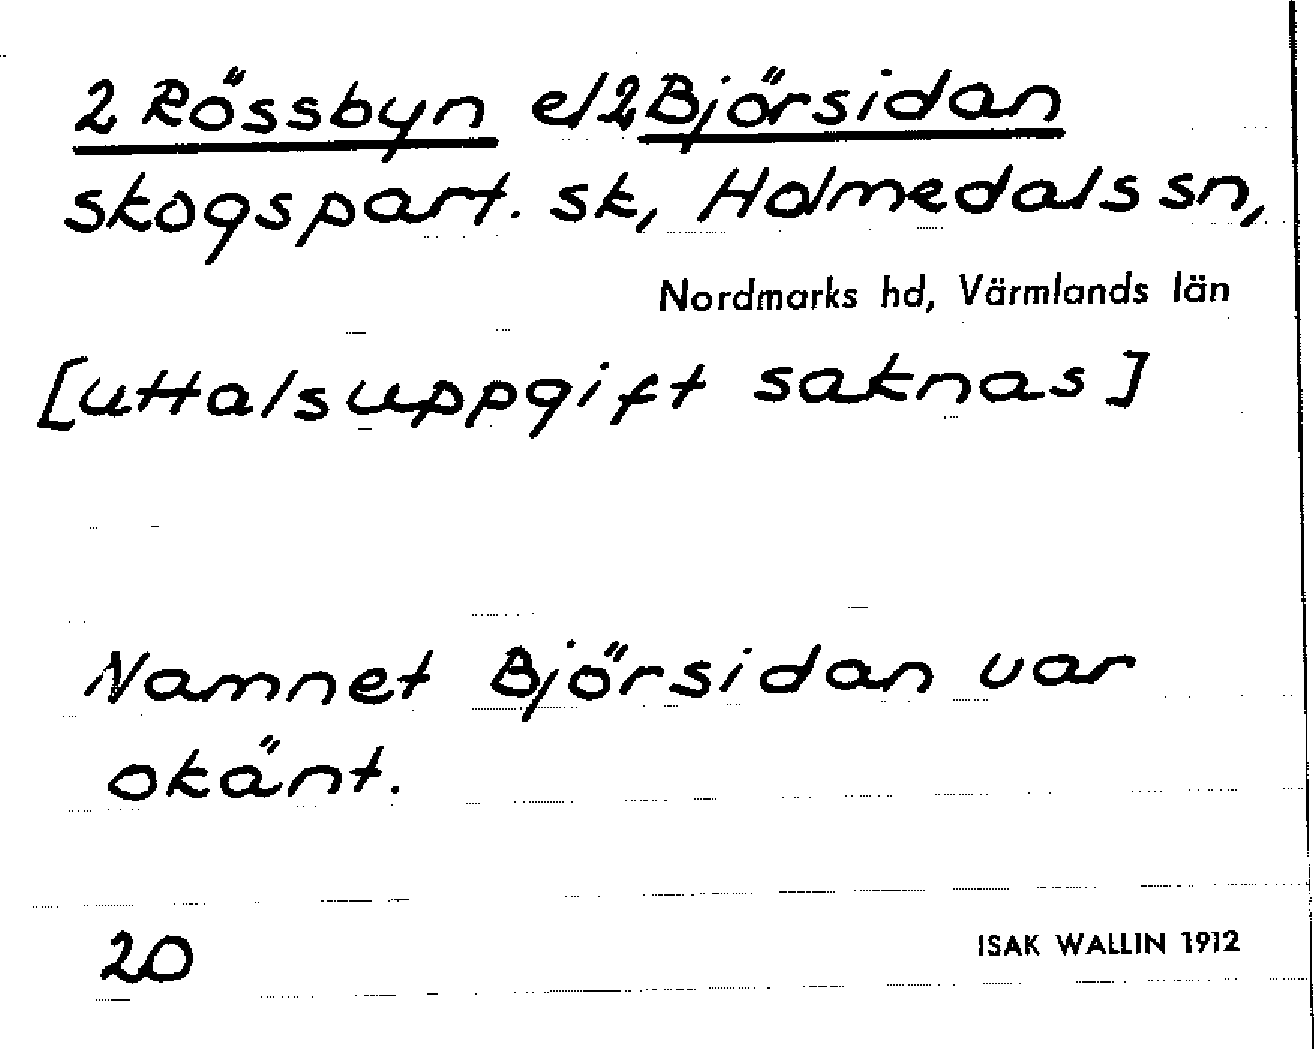 2 Rössbyn el 2 Björsidan
skogspart. sk, Holmedals sn,
Nordmarks hd, Värmlands län
[uttalsuppgift saknas]
Namnet Björsidan var
okänt.
20
ISAK WALLIN 1912